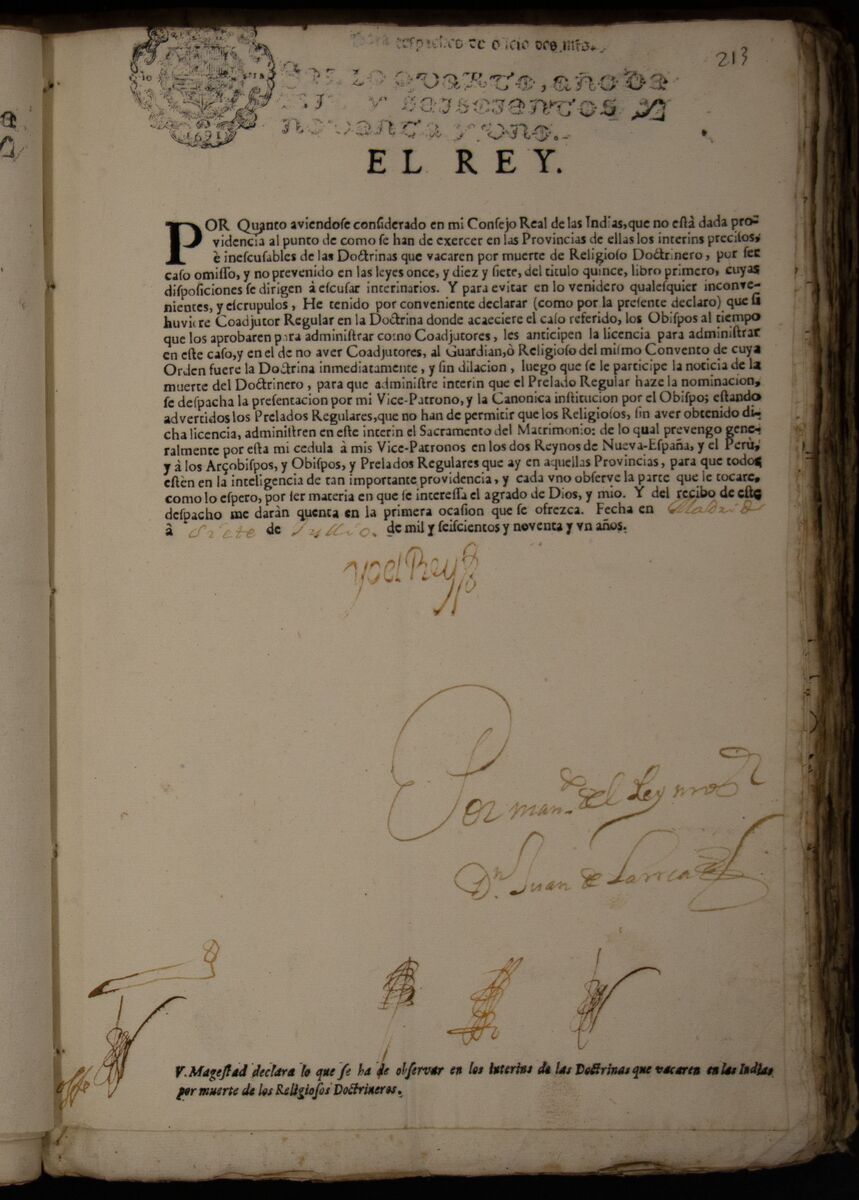 Para despacho de oficio dos mrs.
213
SELLO QVARTO, AÑO DE
MIL Y SEISCIENTOS Y
NOVENTA Y VNO.
1691
EL REY.
POR Quanto aviendose considerado en mi Consejo Real de las Indias, que no està dada pro-
videncia al punto de como se han de exercer en las Provincias de ellas los interins precisos,
è inescusables de las Doctrinas que vacaren por muerte de Religioso Doctrinero, por ser
caso omisso, y no prevenido en las leyes once, y diez y siete, del titulo quince, libro primero, cuyas
disposiciones se dirigen à escusar interinarios. Y para evitar en lo venidero qualesquier inconve-
nientes, y escrupulos, He tenido por conveniente declarar (como por la presente declaro) que si
huviere Coadjutor Regular en la Doctrina donde acaeciere el caso referido, los Obispos al tiempo
que los aprobaren para administrar como Coadjutores, les anticipen la licencia para administrar
en este caso, y en el de no aver Coadjutores, al Guardian, ò Religioso del mismo Convento de cuya
Orden fuere la Doctrina inmediatamente, y sin dilacion, luego que se le participe la noticia de la
muerte del Doctrinero, para que administre interin que el Prelado Regular haze la nominacion,
se despacha la presentacion por mi Vice-Patrono, y la Canonica institucion por el Obispo; estando
advertidos los Prelados Regulares, que no han de permitir que los Religiosos, sin aver obtenido di-
cha licencia, administren en este interin el Sacramento del Matrimonio: de lo qual prevengo gene-
ralmente por esta mi cedula à mis Vice-Patronos en los dos Reynos de Nueva-España, y el Perù,
y à los Arçobispos, y Obispos, y Prelados Regulares que ay en aquellas Provincias, para que todos
estèn en la inteligencia de tan importante providencia, y cada vno observe la parte que le tocare,
como lo espero, por ser materia en que se interessa el agrado de Dios, y mio. Y del recibo de este
despacho me daràn quenta en la primera ocasion que se ofrezca. Fecha en Madrid
à Siete de Jullio. de mil y seiscientos y noventa y vn años.
Yo el Rey
Por mand.º del Rey nro S.r
D.n Juan de Larrea
V. Magestad declara lo que se ha de observar en los interins de las Doctrinas que vacaren en las Indias
por muerte de los Religiosos Doctrineros.